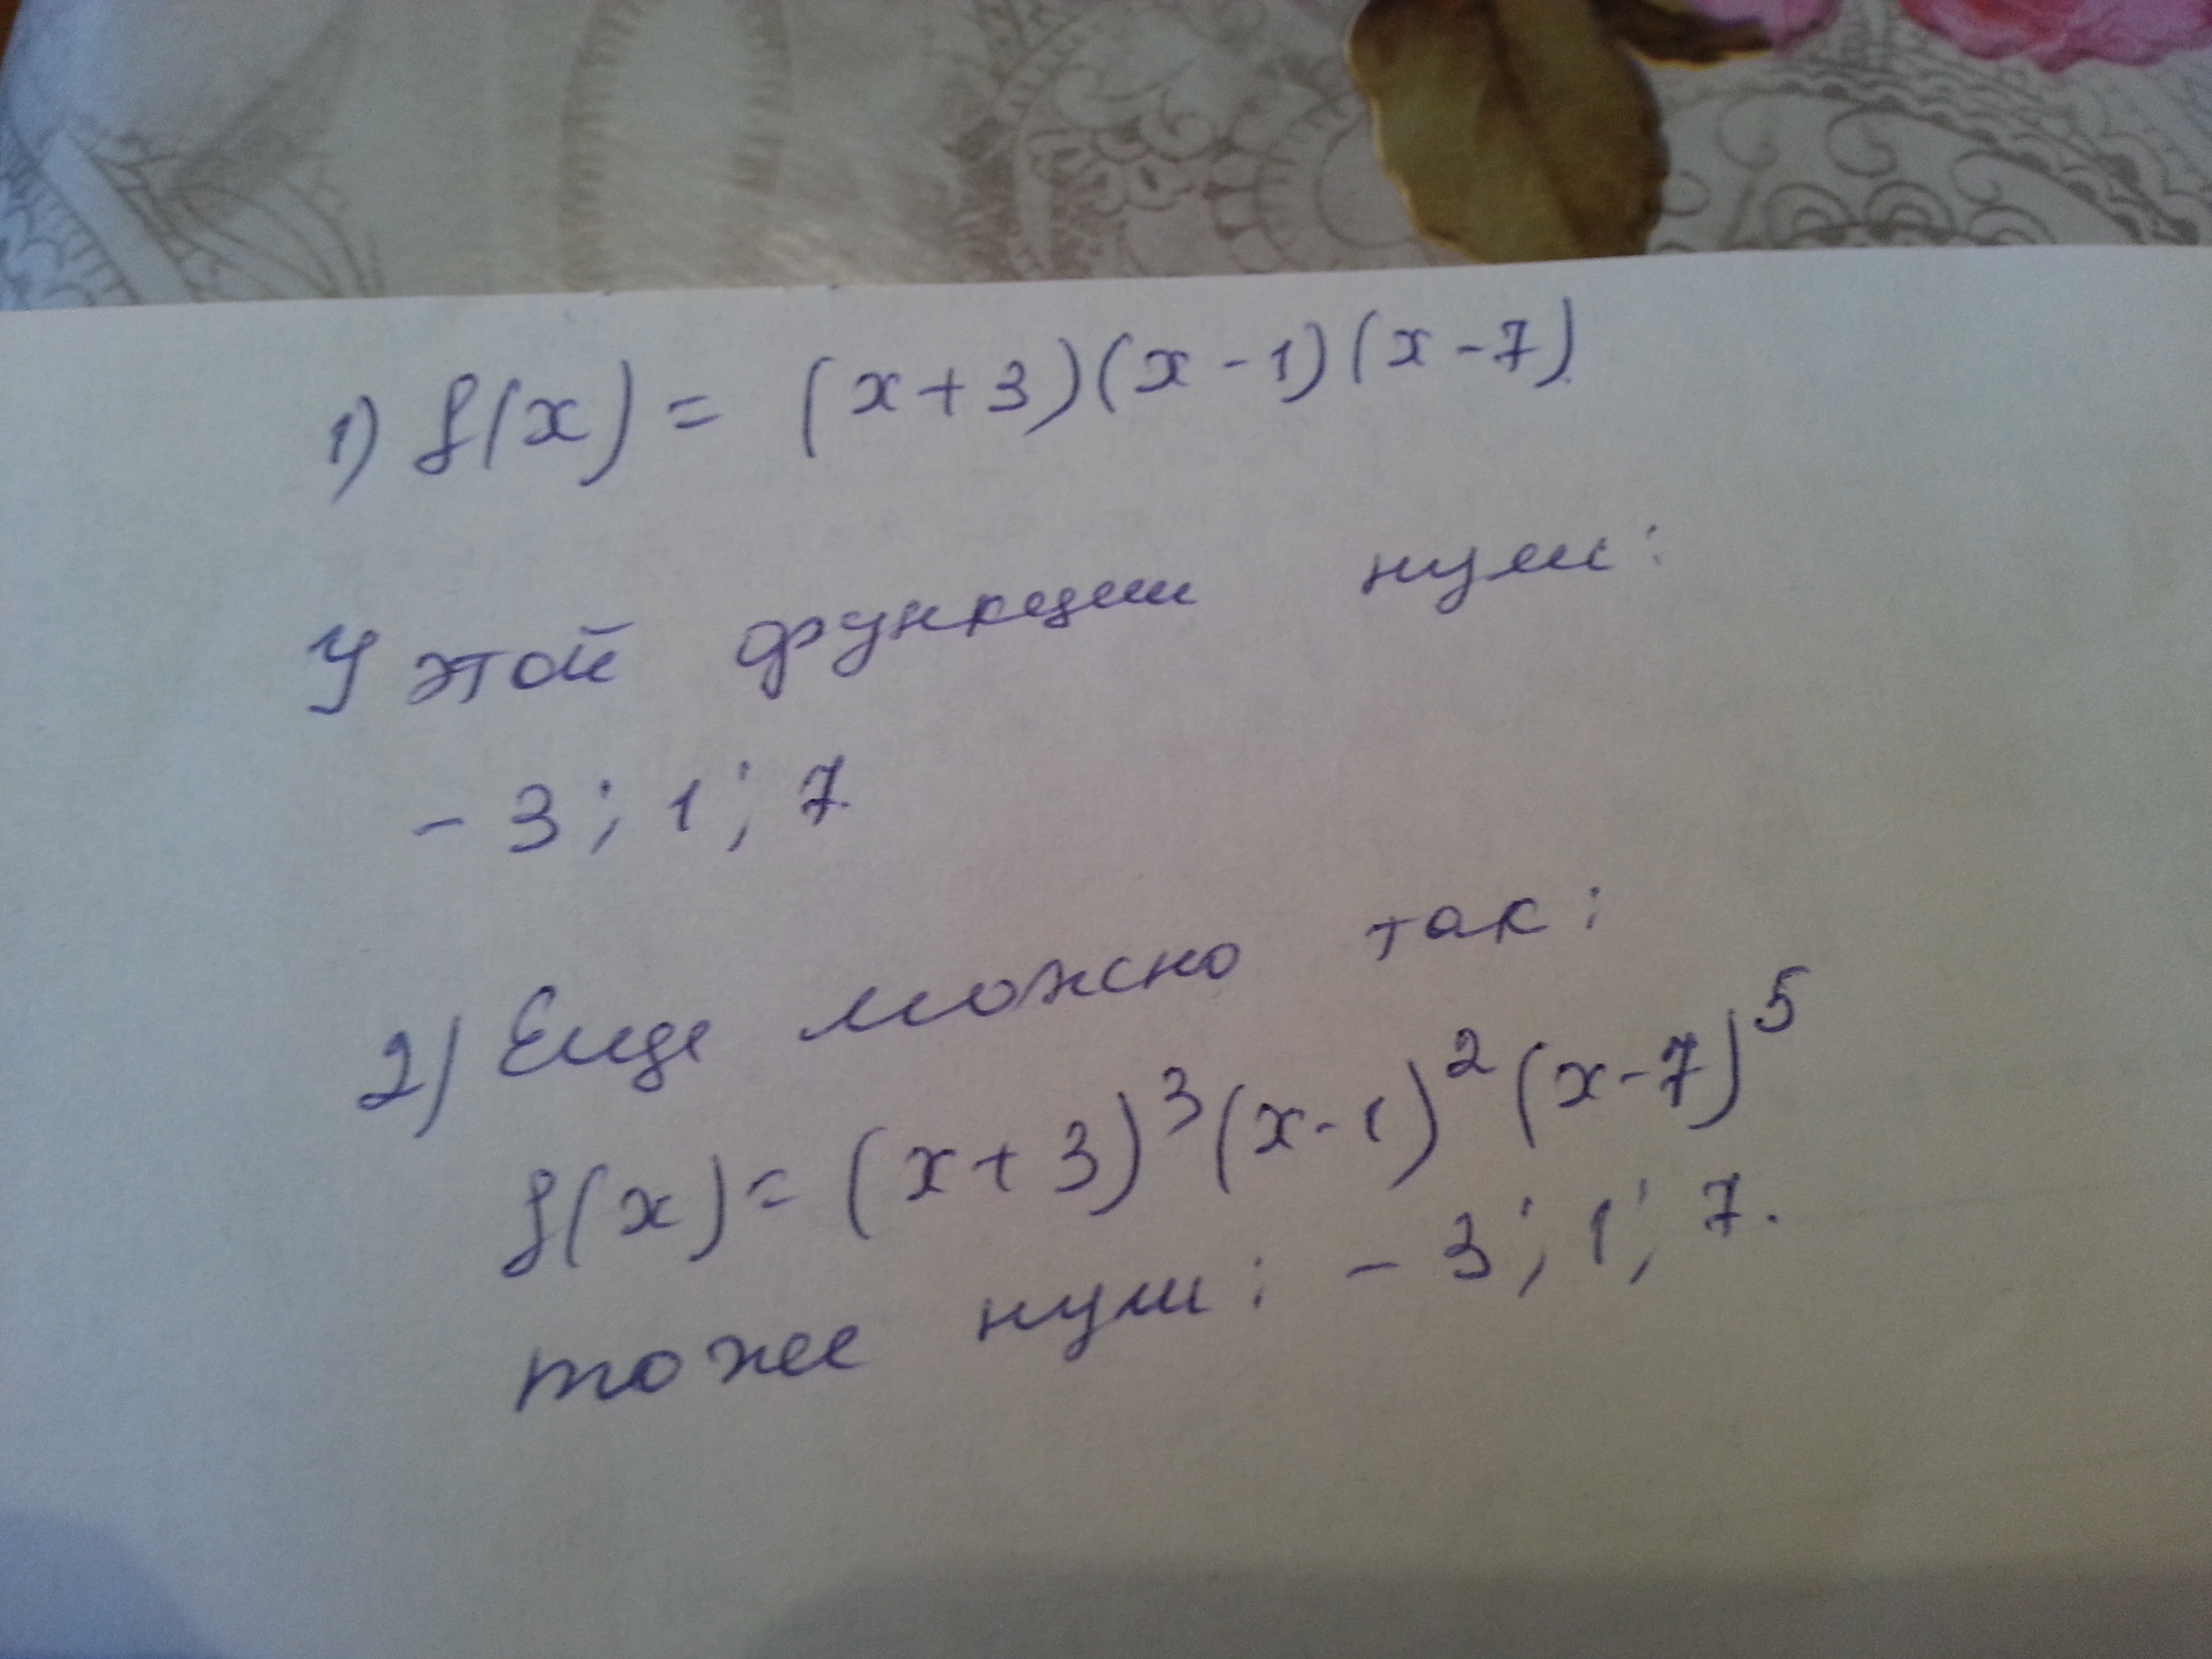 1) f(x) = (x+3)(x-1)(x-7)
У этой функции нули:
- 3; 1; 7.
2) Еще можно так:
f(x) = (x+3)³(x-1)²(x-7)⁵
тоже нули: - 3; 1; 7.